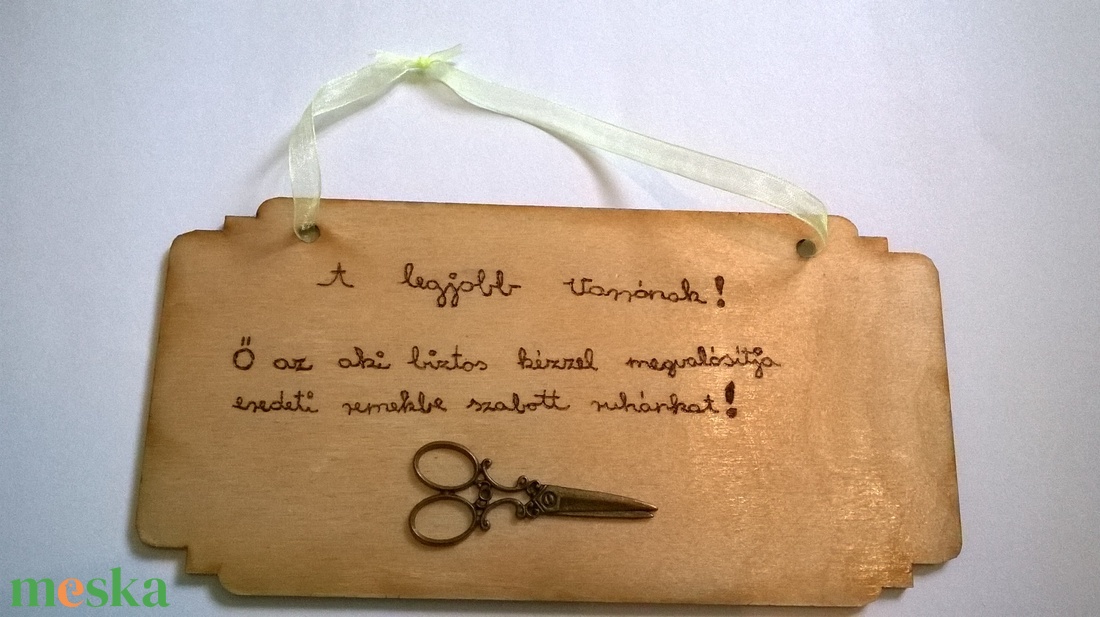 A legjobb Varrónak!
Ő az aki biztos kézzel megvalósítja
eredeti remekbe szabott ruhánkat!
meska